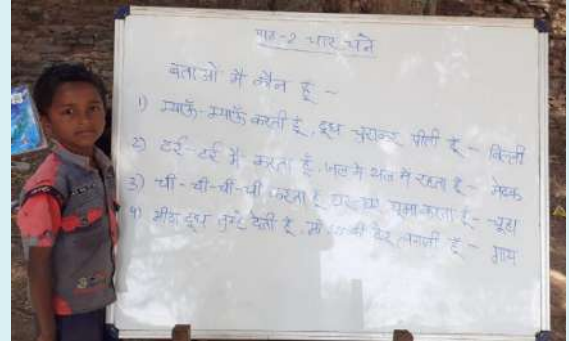 पाठ-2 चार चने
बताओ मैं कौन हूँ ~
1) म्याऊँ-म्याऊँ करती हूँ, दूध चुराकर पीती हूँ - बिल्ली
2) टर्र-टर्र मैं करता हूँ, जल में थल में रहता हूँ - मेंढक
3) चीं-चीं-चीं-चीं करता हूँ घर घर घूमा करता हूँ - चूहा
4) मीठा दूध तुम्हें देती हूँ, की ढेर लगाती हूँ - गाय